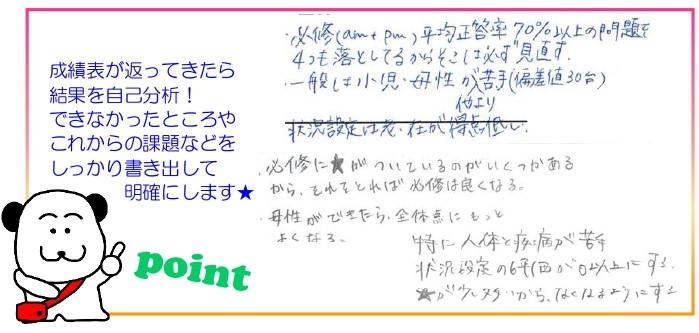 成績表が返ってきたら
結果を自己分析！
できなかったところや
これからの課題などを
しっかり書き出して
明確にします★
point
・必修(am+pm)平均正答率70%以上の問題を
4つも落としてるからそこは必ず見直す.
・一般は小児・母性が苦手(偏差値30台)
他より
状況設定は老・在が得点低い.
・必修に★がついているのがいくつかある
から、それをとれば必修は良くなる。
・母性ができたら、全体点にもっと
よくなる。
特に人体と疾病が苦手
状況設定の6評価が0以上にする
★が少しタタいから、なくなるようにする